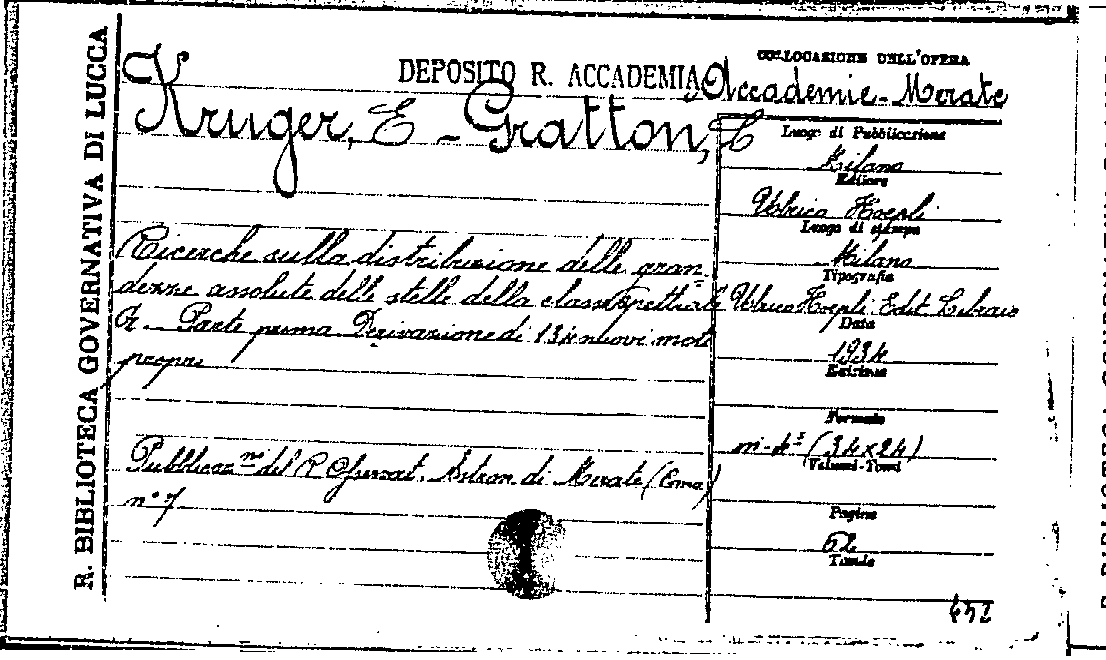 R. BIBLIOTECA GOVERNATIVA DI LUCCA
DEPOSITO R. ACCADEMIA
Kruger, E - Gratton, L
Ricerche sulla distribuzione delle gran-
dezze assolute delle stelle della classe spettrale
G. - Parte prima Derivazione di 134 nuovi moti
propri
Pubblicazni del R Osservat. Astron. di Merate (Como)
n° 7
COLLOCAZIONE DELL'OPERA
Accademie - Merate
Luogo di Pubblicazione
Milano
Editore
Ulrico Hoepli
Luogo di stampa
Milano
Tipografia
Ulrico Hoepli Edit. Libraio
Data
1934
Formato
in-4° (34x24)
Volumi-Tomi
Pagine
52
Tavole